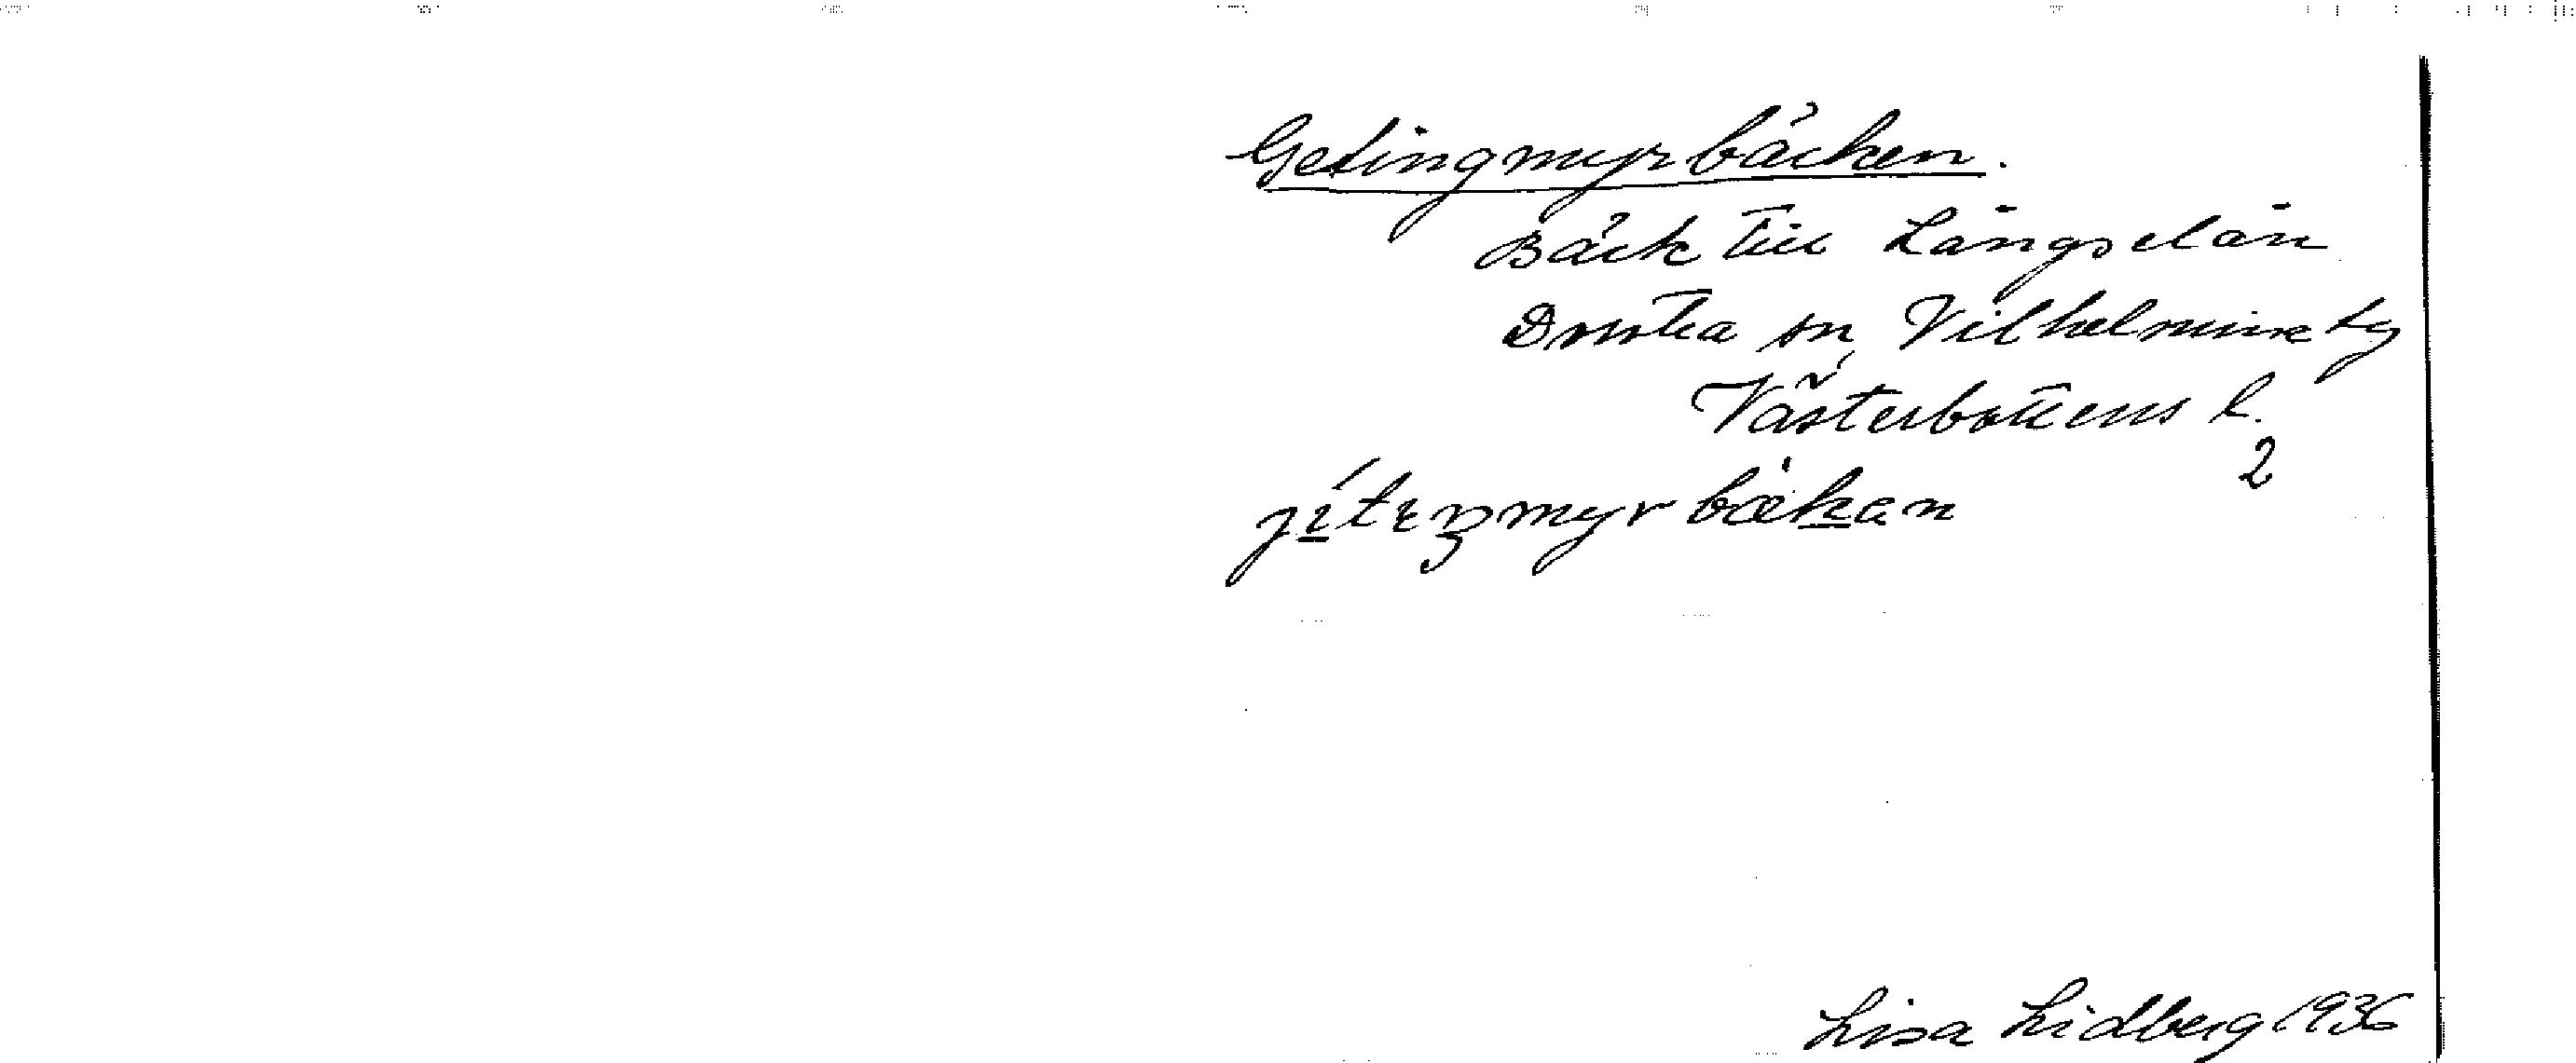 Getingmyrbäcken.
Bäck till Långselån
Dorotea sn, Vilhelmina tg
Västerbottens l.
2
Lisa Lidberg 1936